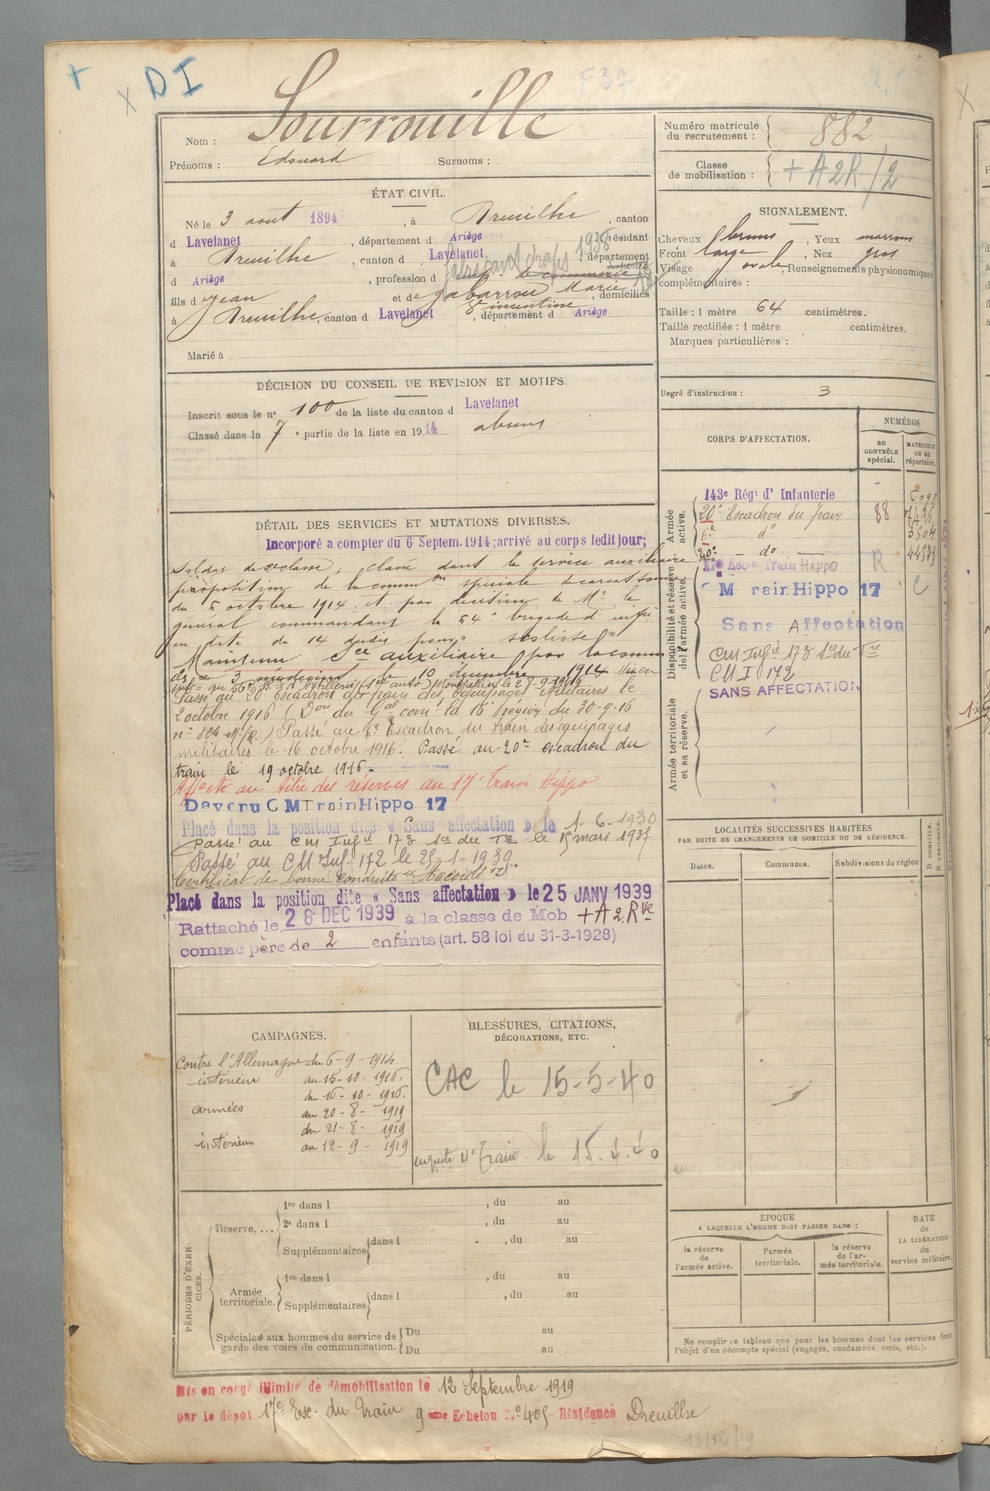 + × D I
Nom : Sourrouille
Prénoms : Edouard Surnoms :
Numéro matricule du recrutement : 882
Classe de mobilisation : + A 2R /2
ÉTAT CIVIL.
Né le 3 aout 1894, à Dreuilhe, canton
d Lavelanet, département d Ariège, résidant
à Dreuilhe, canton d Lavelanet, département
d Ariège, profession d
fabricant draps 1938
fils d Jean et de Gabarrou Marie, domiciliés
à Dreuilhe, canton d Lavelanet, département d Ariège
Marié à
SIGNALEMENT.
Cheveux bruns, Yeux marrons
Front large, Nez gros
Visage ovale Renseignements physionomiques
complémentaires :
Taille : 1 mètre 64 centimètres.
Taille rectifiée : 1 mètre centimètres.
Marques particulières :
DÉCISION DU CONSEIL DE REVISION ET MOTIFS.
Inscrit sous le n° 100 de la liste du canton d Lavelanet
Classé dans la 7e partie de la liste en 1914 absent
Degré d'instruction : 3
CORPS D'AFFECTATION.
NUMÉROS
AU CONTRÔLE spécial.
MATRICULE OU AU répertoire.
Armée active.
143e Régt d'Infanterie
20e Escadron du Train 88
6e do
20e - do
17e Esc on Train Hippo R
Disponibilité et réserve de l'armée active.
C M Train Hippo 17 C
Sans Affectation
CM Infie 173
CM I 172
SANS AFFECTATION
Armée territoriale et sa réserve.
DÉTAIL DES SERVICES ET MUTATIONS DIVERSES.
Incorporé a compter du 6 Septem. 1914; arrivé au corps ledit jour;
Soldat de 2e classe; classé dans le service auxiliaire
proposition de la comm on spéciale de
du 5 octobre 1914 et par décision de Mr le
général commandant la 64e brigade d'infie
en date du 14 dudit pour
Maintenu Sce auxiliaire par la comm
10 décembre 1914
Passé au 20e Escadron du train des équipages militaires le
2 octobre 1916 (Don du Gal com t la 16e région du 30-9-16
Passé au 6e Escadron du train des équipages
militaires le 16 octobre 1916. Passé au 20e escadron du
train le 19 octobre 1916.
Affecté au titre des réserves au 17e Train Hippo
Devenu C M Train Hippo 17
Placé dans la position dite « Sans affectation » le 1-6-1930
Passé au CM Infie 173 le 15 mars 1937
Passé au CM Inf. 172 le 25-1-1939.
Certificat de bonne conduite "Accordé"
Placé dans la position dite « Sans affectation » le 25 JANV 1939
Rattaché le 28 DEC 1939 à la classe de Mob + A 2. Rve
comme père de 2 enfants (art. 58 loi du 31-3-1928)
LOCALITÉS SUCCESSIVES HABITÉES
PAR SUITE DE CHANGEMENTS DE DOMICILE OU DE RÉSIDENCE.
Dates. Communes. Subdivisions de région D. DOMICILE. R. RÉSIDENCE.
CAMPAGNES.
Contre l'Allemagne du 6-9-1914
intérieur au 15-10-1916.
du 16-10-1916.
armées au 20-8-1919
du 21-8-1919
intérieur au 12-9-1919
BLESSURES, CITATIONS, DÉCORATIONS, ETC.
CAC le 15-5-40
enquete Train le 15.4.40
PÉRIODES D'EXERCICES.
Réserve.... 1re dans l , du au
2e dans l , du au
Supplémentaires dans l , du au
Armée territoriale. 1re dans l , du au
Supplémentaires dans l , du au
Spéciales aux hommes du service de garde des voies de communication. Du au
Du au
EPOQUE
A LAQUELLE L'HOMME DOIT PASSER DANS :
la réserve de l'armée active.
l'armée territoriale.
la réserve de l'armée territoriale.
DATE de LA LIBÉRATION du service militaire.
Ne remplir ce tableau que pour les hommes dont les services font
l'objet d'un décompte spécial (engagés, condamnés, omis, etc.).
Mis en congé illimité de démobilisation le 12 Septembre 1919
par le dépot 17e Esc. du Train 9eme Echelon No 405 Résidence Dreuilhe